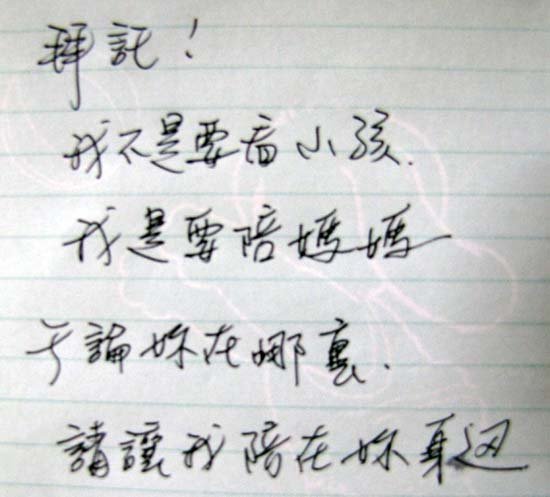 拜託!
我不是要看小孩.
我是要陪媽媽
于論妳在哪裏.
請讓我陪在妳身边